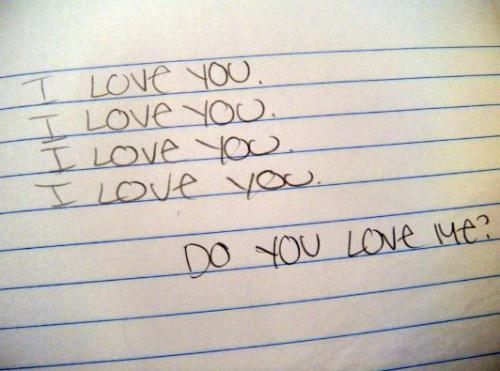 I LOVe YOU.
I LOVe YOU.
I LOVe YOU.
I LOVe YOU.
DO YOU LOVe Me?